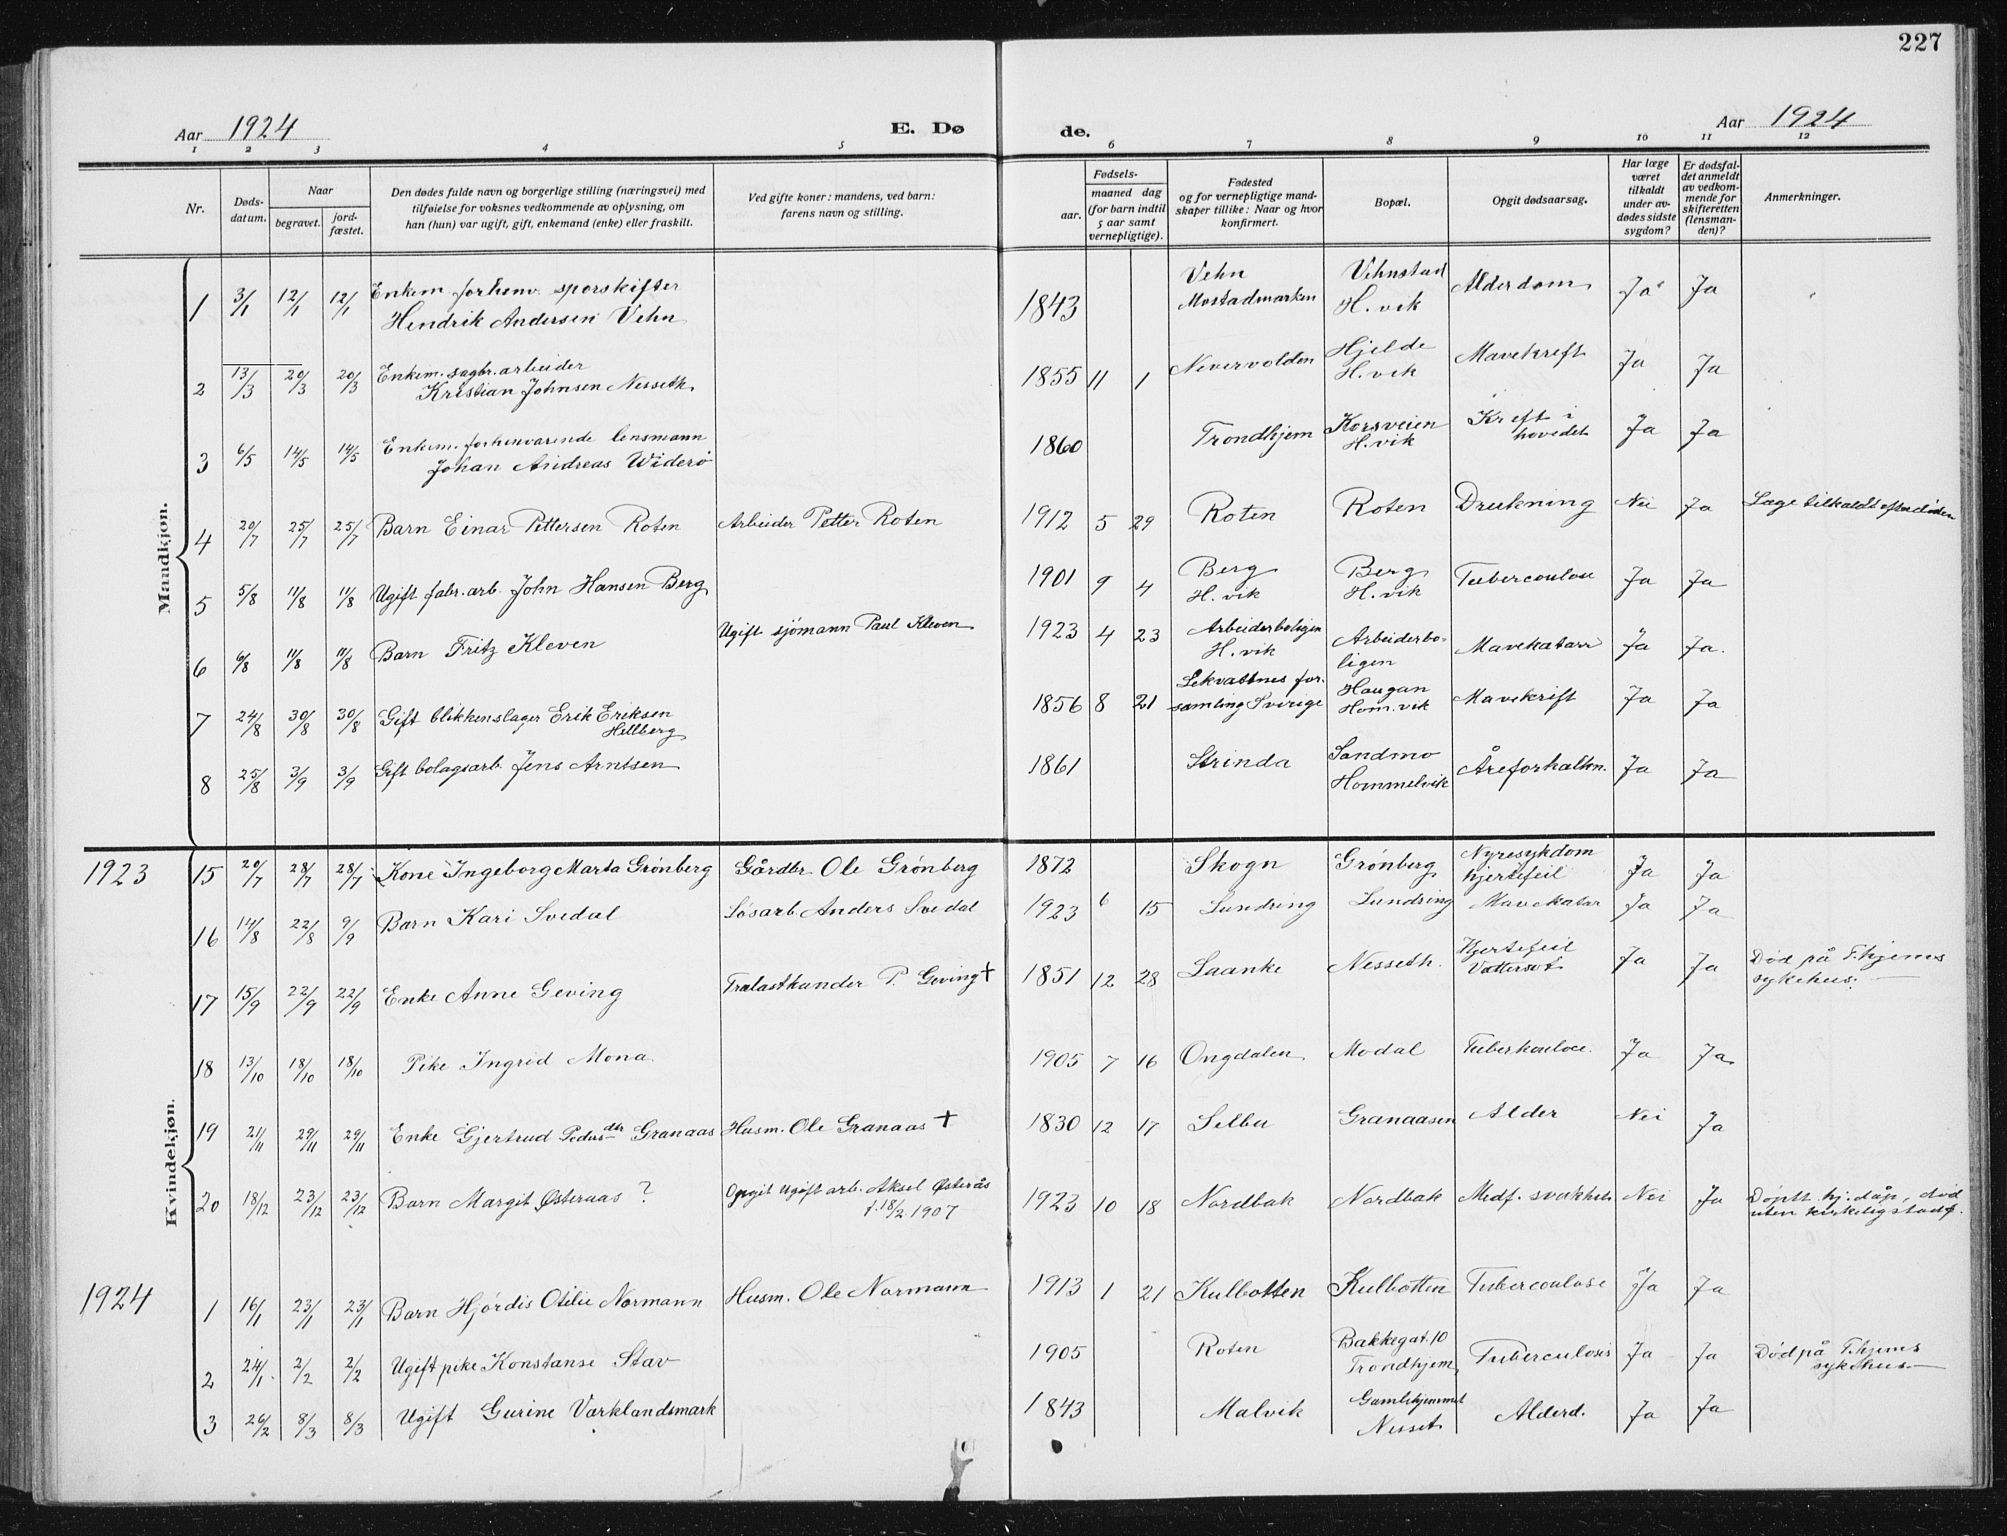 227
Aar 1924 E. Dø de. Aar 1924
1 2 3 4 5 6 7 8 9 10 11 12
Nr. Døds-datum. Naar begravet. jord-fæstet. Den dødes fulde navn og borgerlige stilling (næringsvei) med tilføielse for voksnes vedkommende av oplysning, om han (hun) var ugift, gift, enkemand (enke) eller fraskilt. Ved gifte koner: mandens, ved barn: farens navn og stilling. Fødsels- aar. maaned dag (for barn indtil 5 aar samt vernepligtige). Fødested og for vernepligtige mand-skaper tillike: Naar og hvor konfirmert. Bopæl. Opgit dødsaarsag. Har læge været tilkaldt under av-dødes sidste sygdom? Er dødsfal-det anmeldt av vedkom-mende for skifteretten (lensman-den)? Anmerkninger.
Mandkjøn.
1 3/1 12/1 12/1 Enkem. forhenv. sporskifter Hendrik Andersen Vehn 1843 Vehn Mostadmarken Vehnstad H.vik Alderdom Ja Ja
2 13/3 20/3 20/3 Enkem. sagbr.arbeider Kristian Johnsen Nesseth 1855 11 1 Nevervolden Hjelde H.vik Mavekreft Ja Ja
3 6/5 14/5 14/5 Enkem. forhenvarende lensmann Johan Andreas Widerö 1860 Trondhjem Korsveien H.vik Kreft i hovedet Ja Ja
4 20/7 25/7 25/7 Barn Einar Pettersen Roten Arbeider Petter Roten 1912 5 29 Roten Roten Drukning Nei Ja Læge tilkaldt efter döden
5 5/8 11/8 11/8 Ugift fabr.arb. John Hansen Berg 1901 9 4 Berg H.vik Berg H.vik Tuberculose Ja Ja
6 6/8 11/8 11/8 Barn Fritz Kleven Ugift sjömann Paul Kleven 1923 4 23 Arbeiderboligen H.vik Arbeiderbo-ligen Mavekatarr Ja Ja.
7 24/8 30/8 30/8 Gift blikkenslager Erik Eriksen Hellberg 1856 8 21 Lekvattnes for-samling Sverige Haugan Hom.vik Mavekrift Ja Ja
8 25/8 3/9 3/9 Gift bolagsarb. Jens Arntsen 1861 Strinda Sandmo Hommelvik Åreforkalkn. Ja Ja
Kvindekjøn.
1923 15 20/7 28/7 28/7 Kone Ingeborg Marta Grönberg Gårdbr. Ole Grönberg 1872 Skogn Grönberg Nyresykdom hjertefeil Ja Ja
16 14/8 22/8 9/9 Barn Kari Svedal Løsarb. Anders Svedal 1923 6 15 Lundring Lundring Mavekatar Ja Ja
17 15/9 22/9 22/9 Enke Anne Geving Trælasthandler P. Geving † 1851 12 28 Laanke Nesseth. Hjertefeil Vattersot Ja Ja Död på T.hjems sykehus.
18 13/10 18/10 18/10 Pike Ingrid Mona 1905 7 16 Ongdalen Modal Tuberkulose. Ja Ja
19 21/11 29/11 29/11 Enke Gjertrud Pedersdtr Granaas Husm. Ole Granaas † 1830 12 17 Selbu Granaasen Alder Nei Ja
20 18/12 23/12 23/12 Barn Margit Østeraas ? Opgit ugift arb. Aksel Østerås f. 18/2 1907 1923 10 18 Nordbak Nordbak Medf. svakhet Nei Ja Döpt hj.dåp, död uten kirkelig stadf.
1924 1 16/1 23/1 23/1 Barn Hjördis Otilie Normann Husm. Ole Normann 1913 1 21 Kulbotten Kulbotten Tuberculose Ja Ja
2 24/1 2/2 2/2 Ugift pike Konstanse Stav 1905 Roten Bakkegat. 10 Trondhjem Tuberculosis Ja Ja Död på T.hjems sykehus
3 26/2 8/3 8/3 Ugift Gurine Varklandsmark 1843 Malvik Gamlehjemmet Nesset Alderd. Ja Ja